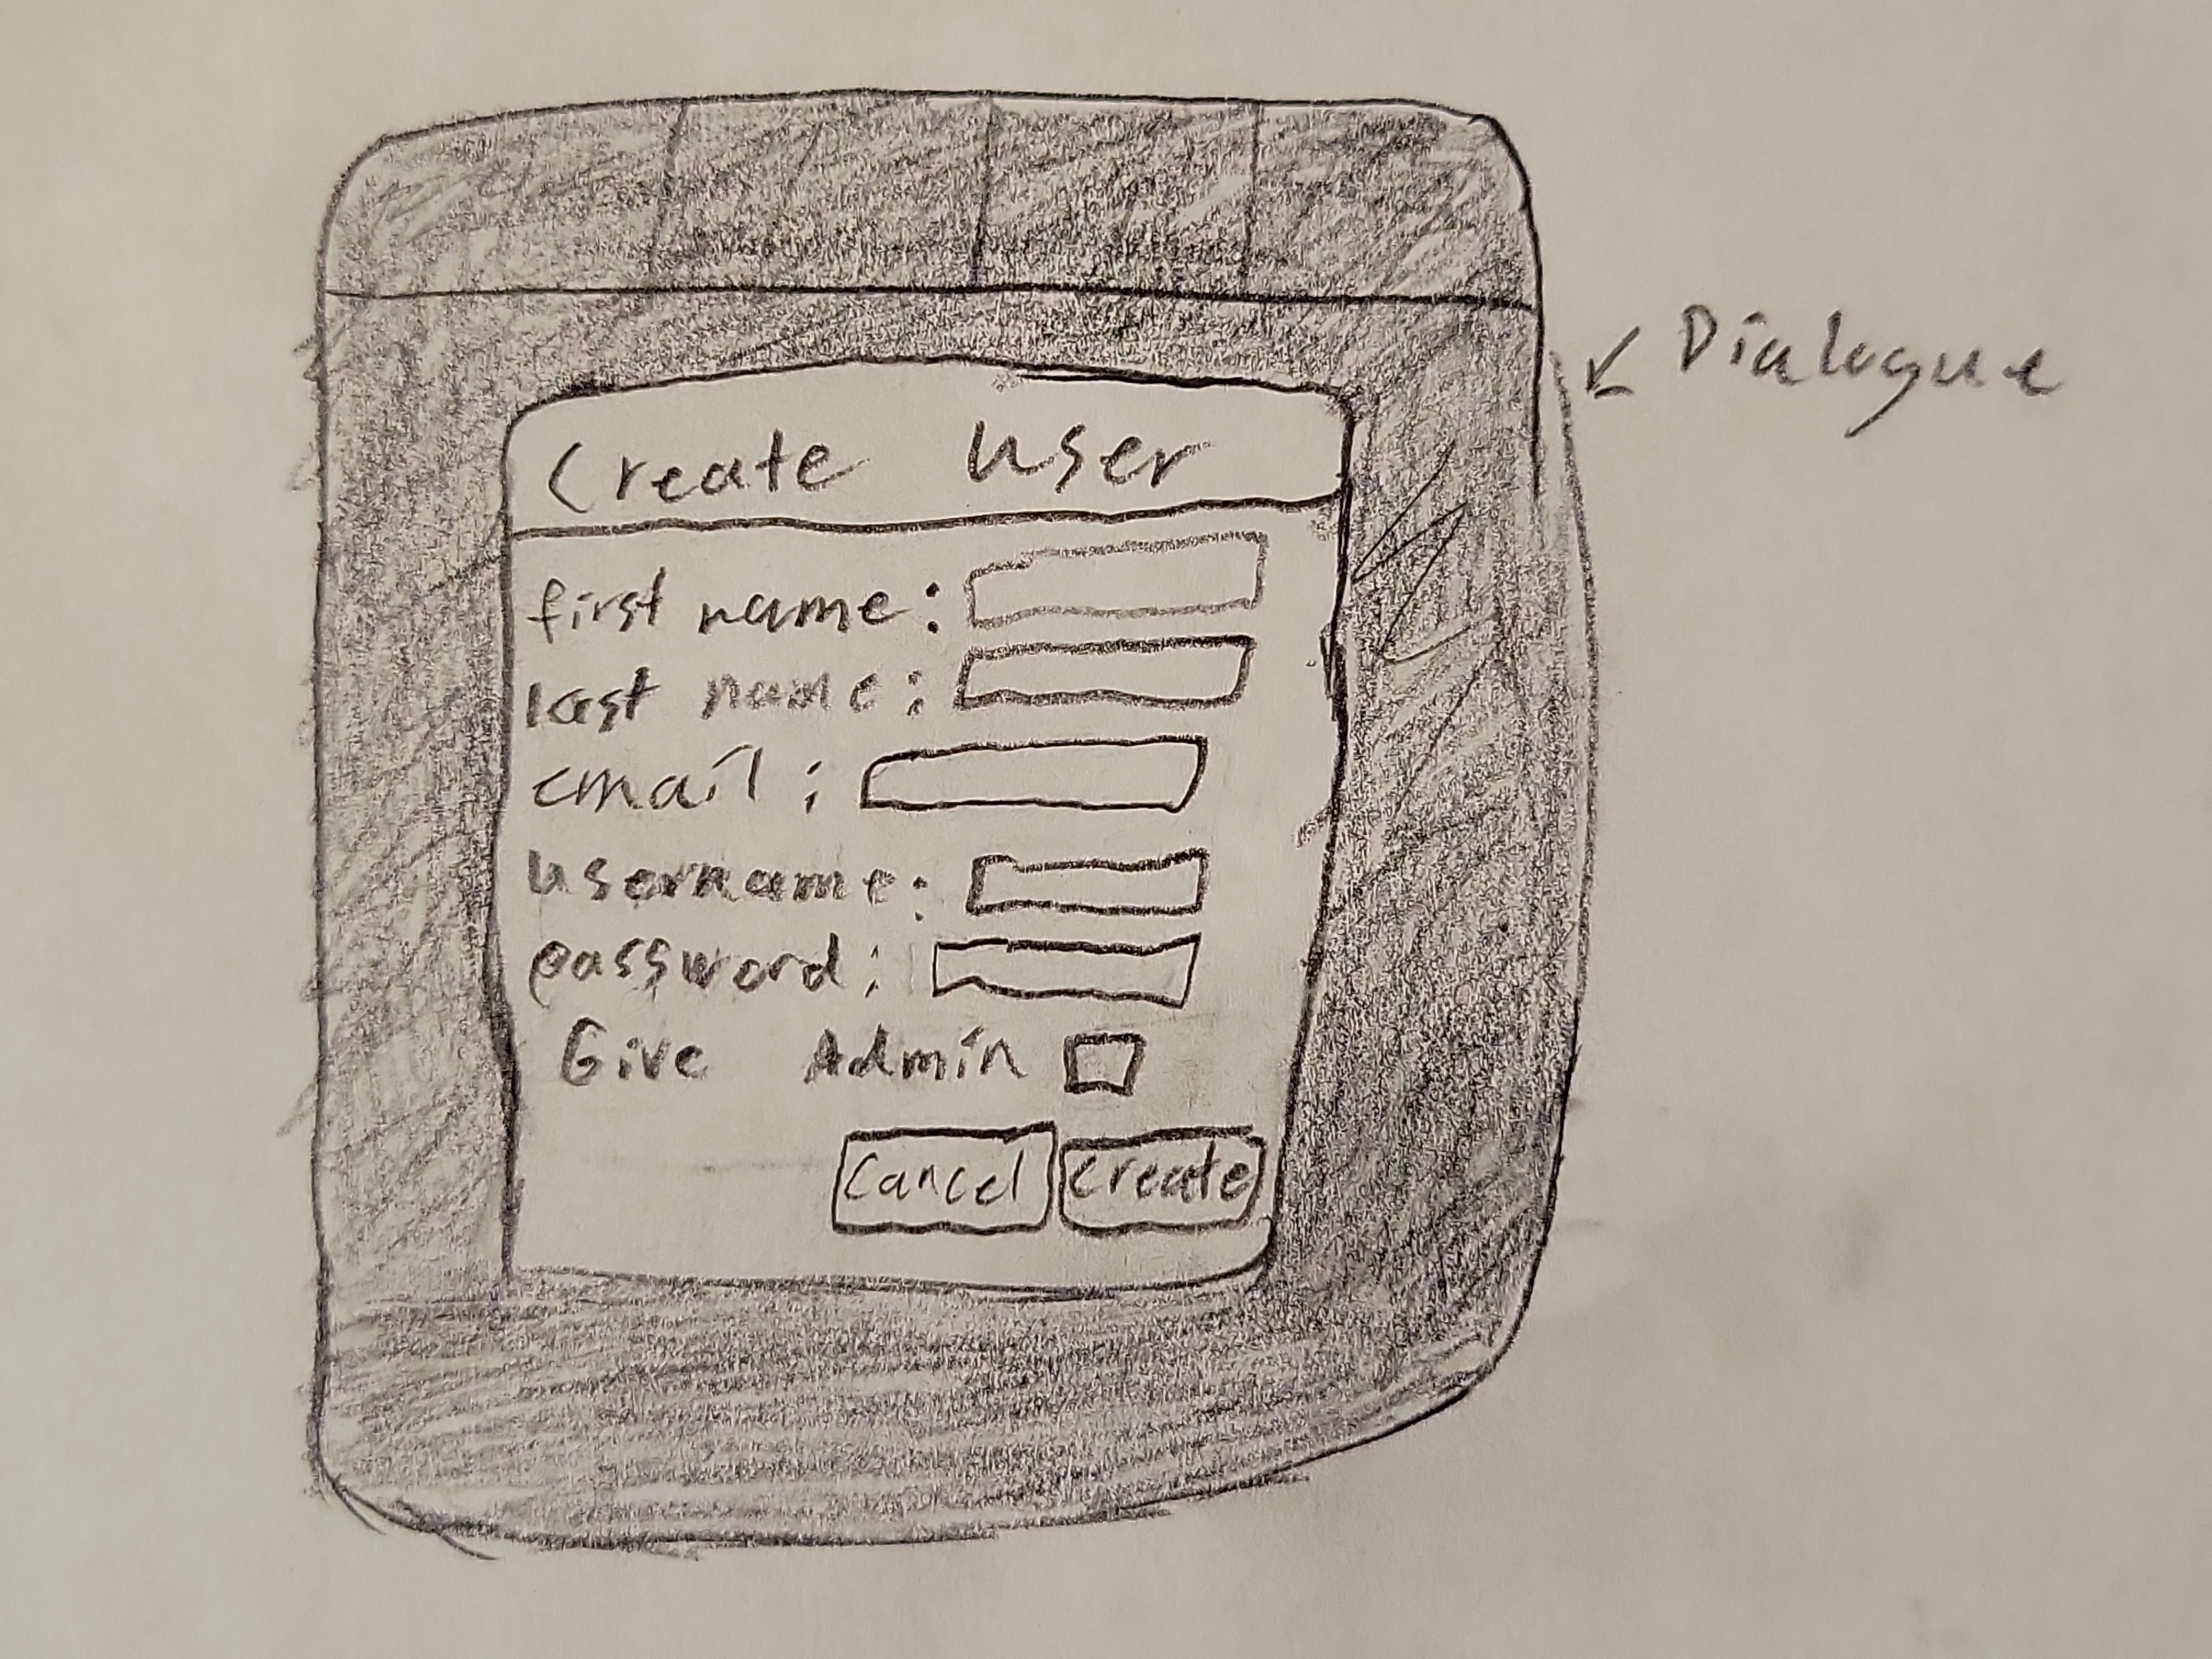 Dialogue
Create User
first name:
last name:
email:
username:
password:
Give Admin
Cancel Create